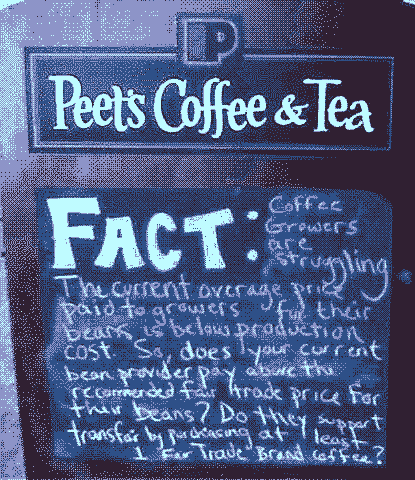 P
Peet's Coffee & Tea
FACT:
Coffee
Growers
are
struggling
The current average price
paid to growers for their
beans is below production
cost. So, does your current
bean provider pay above the
recommended fair trade price for
their beans? Do they support
transfair by purchasing at least
1 Fair Trade Brand coffee?